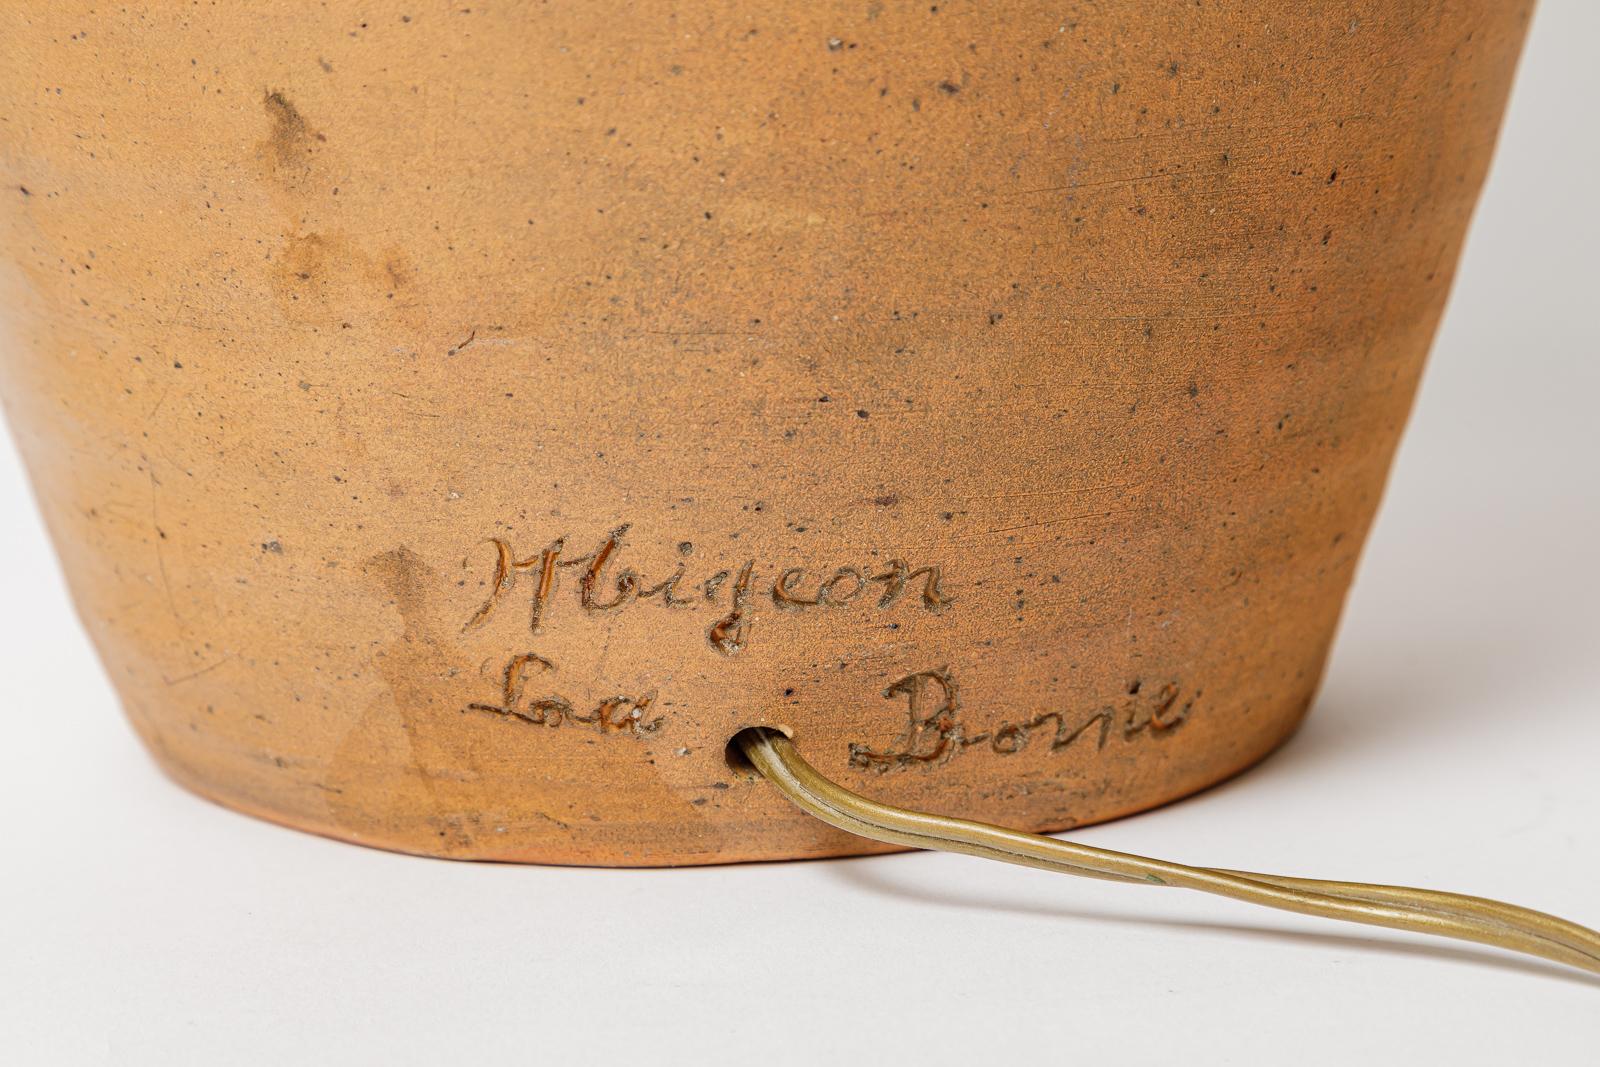 H bigeon
La Borne